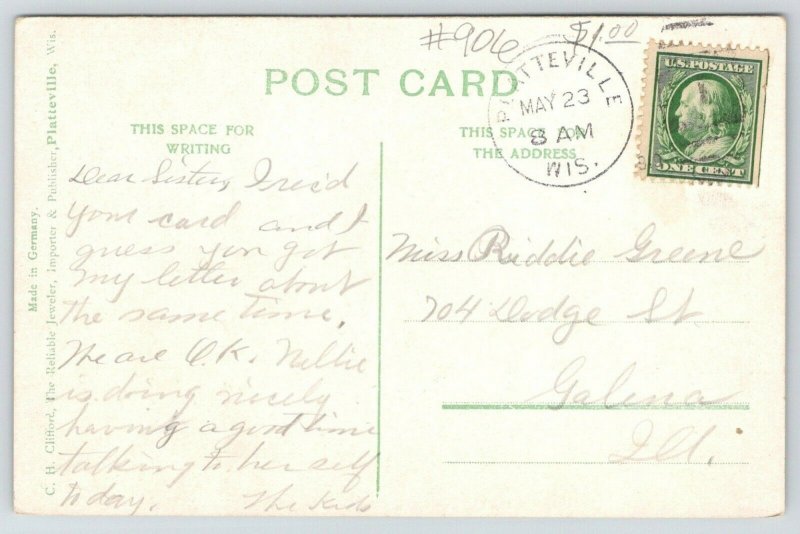 #906 $1.00
POST CARD
PLATTEVILLE
MAY 23
8 AM
WIS.
U.S. POSTAGE
ONE CENT
THIS SPACE FOR
WRITING
THIS SPACE FOR
THE ADDRESS
Dear Sister, I rec'd
your card and I
guess you got
my letter about
the same time.
We are O.K. Nellie
is doing nicely
having a good time
talking to her self
today. The Kids
Miss Riddie Greene
704 Dodge St
Galena
Ill.
Made in Germany.
C. H. Clifford, The Reliable Jeweler, Importer & Publisher, Platteville, Wis.